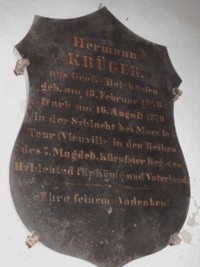 Hermann
KRÜGER,
geb. am 13. Februar
Starb am 16. August 1870
in der Schlacht bei Mars la
Tour (Vionville) in den Reihen
des 7. Magdeb. Kürassier Reg. den
Heldentod für König und Vaterland.
Ehre seinem Andenken!